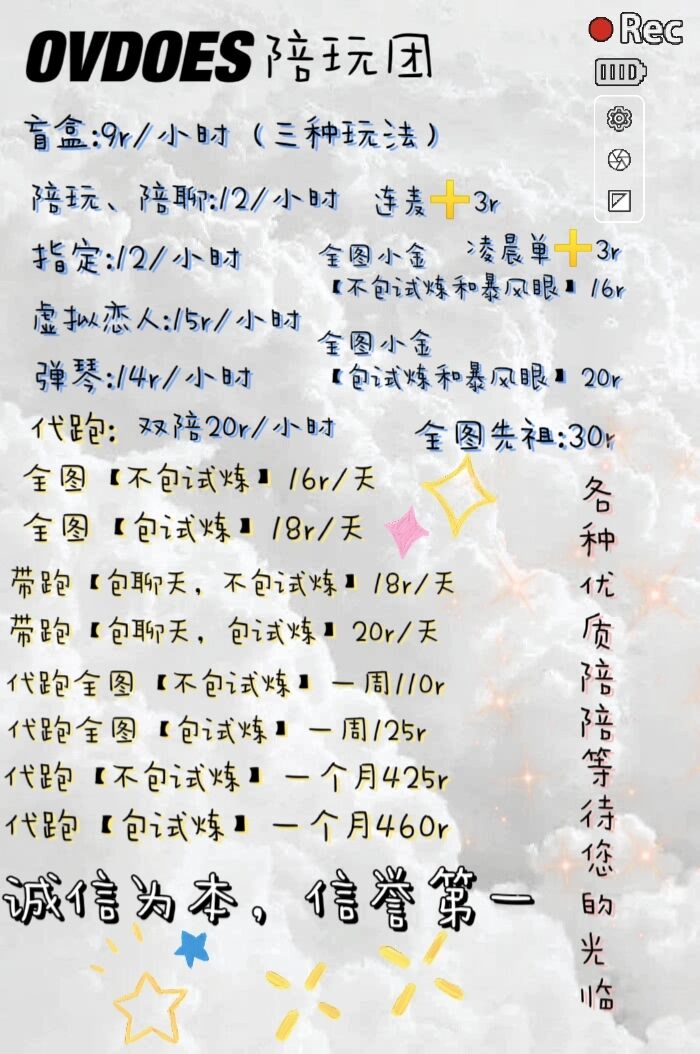 Rec
OVDOES 陪玩团
盲盒:9r/小时（三种玩法）
陪玩、陪聊:12/小时 连麦➕3r
指定:12/小时
凌晨单➕3r
全图小金
【不包试炼和暴风眼】16r
虚拟恋人:15r/小时
全图小金
【包试炼和暴风眼】20r
弹琴:14r/小时
代跑: 双陪20r/小时
全图先祖:30r
全图【不包试炼】16r/天
全图【包试炼】18r/天
带跑【包聊天，不包试炼】18r/天
带跑【包聊天，包试炼】20r/天
代跑全图【不包试炼】一周110r
代跑全图【包试炼】一周125r
代跑【不包试炼】一个月425r
代跑【包试炼】一个月460r
诚信为本，信誉第一
各种优质陪陪等待您的光临